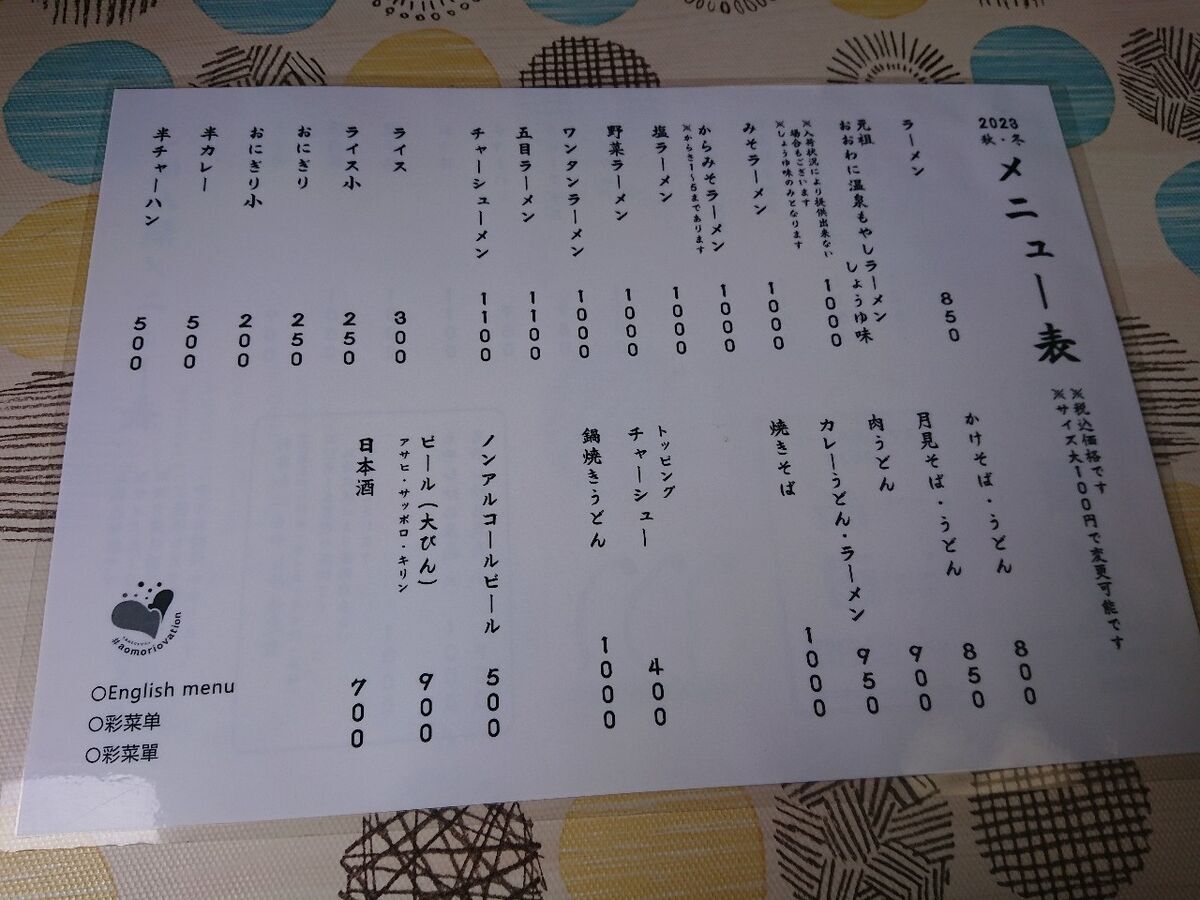 2023
秋・冬
メニュー表
※税込価格です
※サイズ大100円で変更可能です
ラーメン 850
元祖
おおわに温泉もやしラーメン
しょうゆ味 1000
※入荷状況により提供出来ない
場合もございます
※しょうゆ味のみとなります
みそラーメン 1000
からみそラーメン 1000
※からさ1〜5まであります
塩ラーメン 1000
野菜ラーメン 1000
ワンタンラーメン 1000
五目ラーメン 1100
チャーシューメン 1100
ライス 300
ライス小 250
おにぎり 250
おにぎり小 200
半カレー 500
半チャーハン 500
かけそば・うどん 800
月見そば・うどん 850
肉うどん 900
カレーうどん・ラーメン 950
焼きそば 1000
トッピング
チャーシュー 400
鍋焼きうどん 1000
ノンアルコールビール 500
ビール(大びん) 900
アサヒ・サッポロ・キリン
日本酒 700
#aomoriovation
○English menu
○彩菜单
○彩菜單